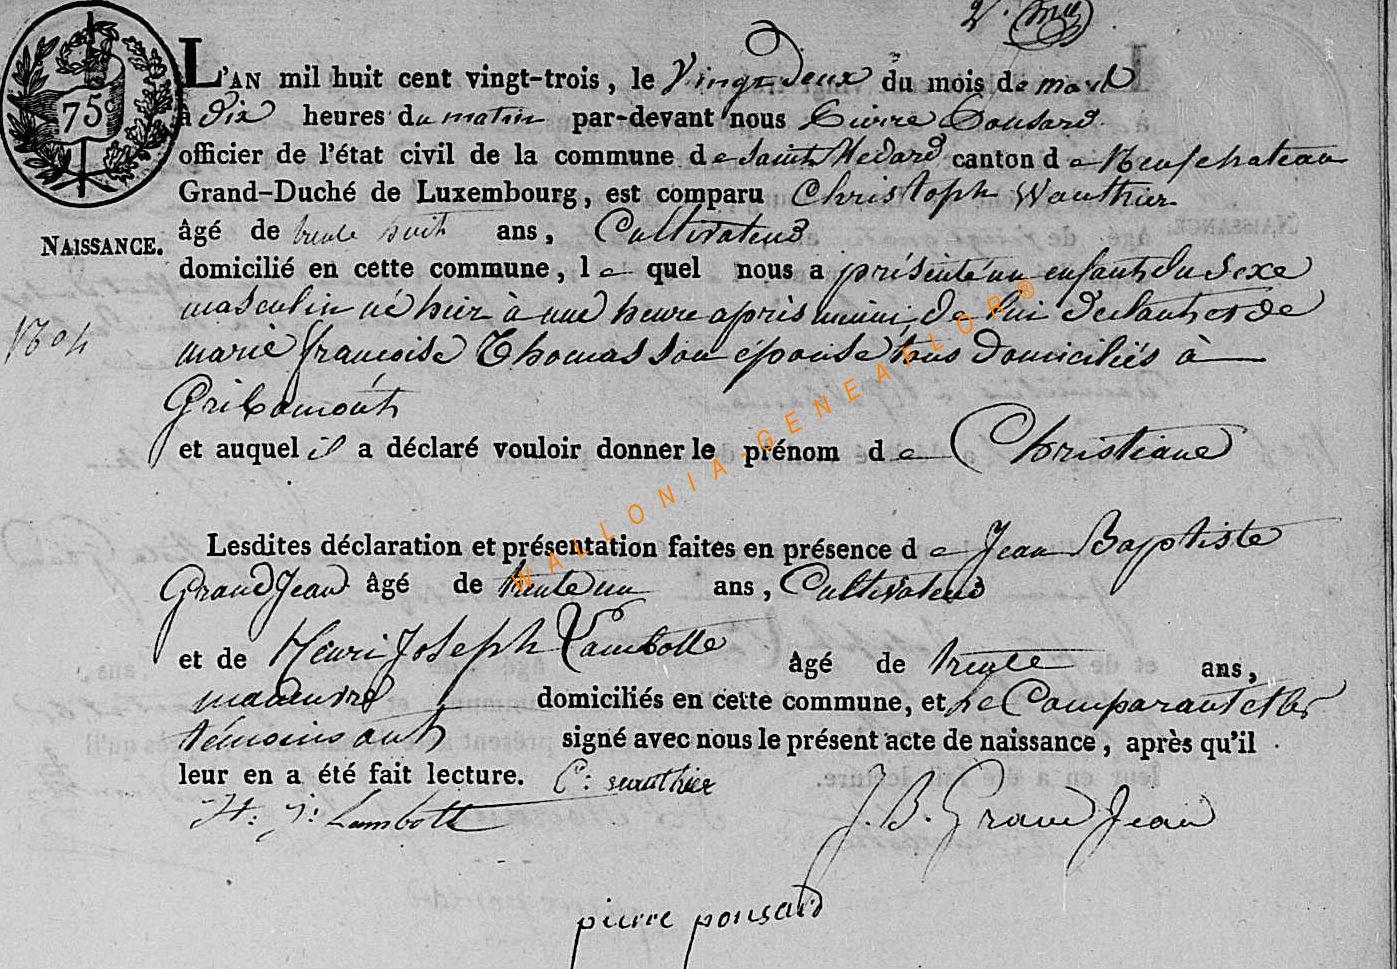 75c
L'AN mil huit cent vingt-trois, le vingt deux du mois de mars
à dix heures du matin par-devant nous Pierre Ponsard
officier de l'état civil de la commune de Saint Medard canton de Neufchateau
Grand-Duché de Luxembourg, est comparu Christoph Wauthier
NAISSANCE. âgé de trente huit ans, Cultivateur
domicilié en cette commune, le quel nous a présenté un enfant du sexe
masculin né hier à une heure après midi, de lui déclarant et de
marie françoise Thomas son épouse tous domiciliés à
Gribomont
et auquel il a déclaré vouloir donner le prénom de Christiane
Lesdites déclaration et présentation faites en présence de Jean Baptiste
GrandJean âgé de trente un ans, Cultivateur
et de Henri Joseph Lambotte âgé de trente ans,
domiciliés en cette commune, et le Comparant et les
témoins ont signé avec nous le présent acte de naissance, après qu'il
leur en a été fait lecture. C: wauthier
H: J: Lambott J. B. Grand Jean
pierre ponsard
WALLONIA-GENEAFLOR®